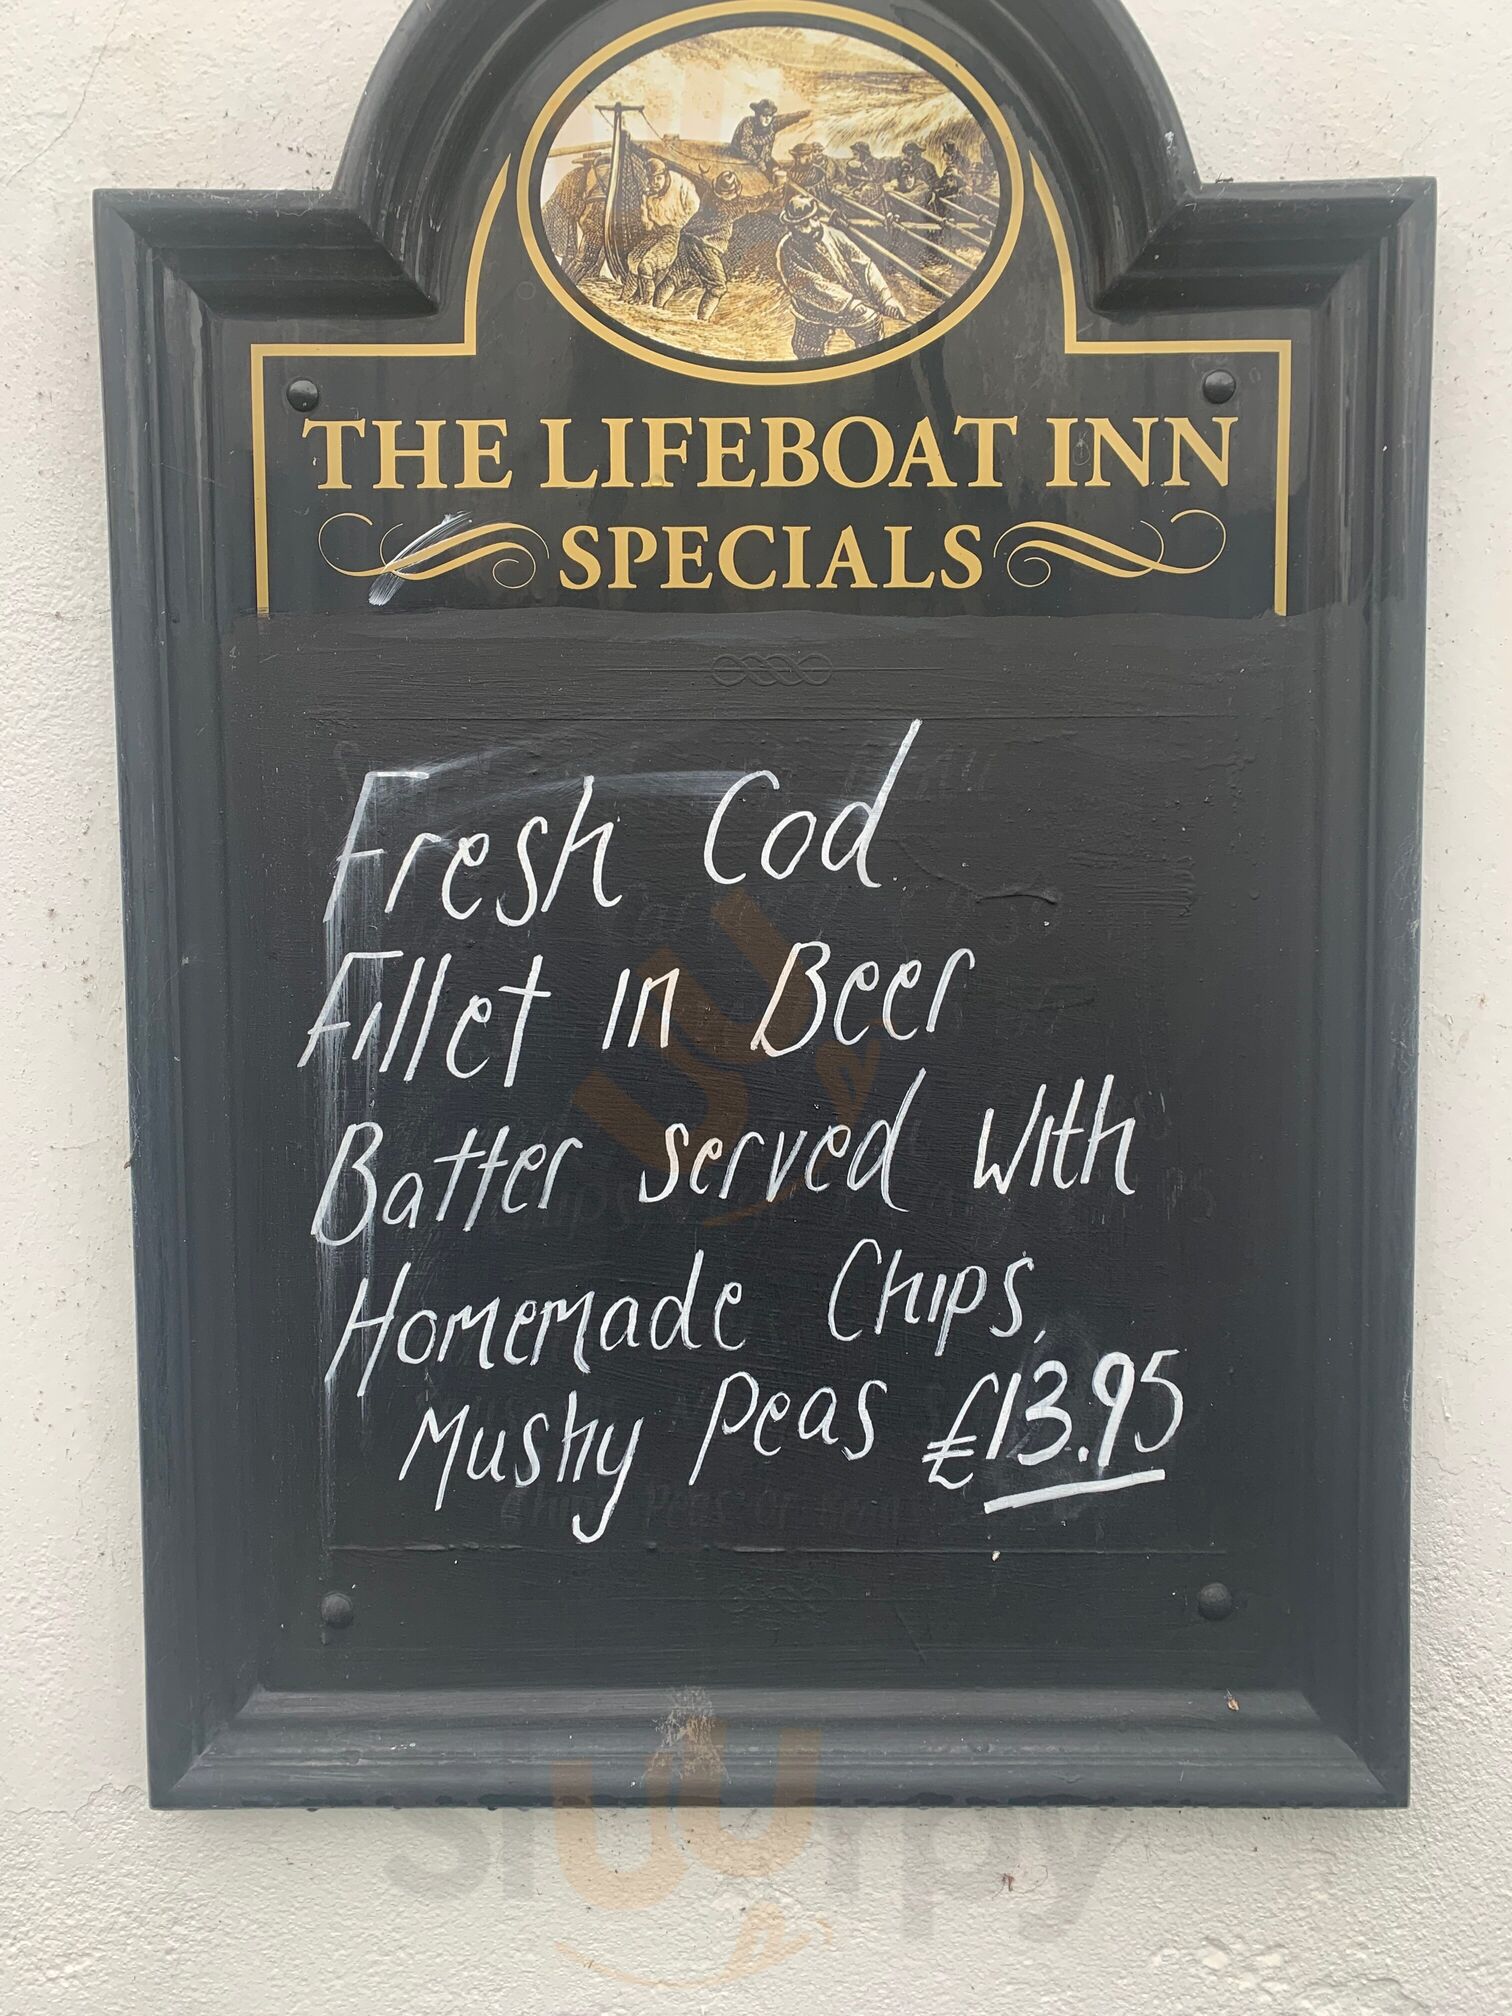 THE LIFEBOAT INN
SPECIALS
Fresh Cod
Fillet in Beer
Batter served with
Homemade Chips,
Mushy Peas £13.95
sluurpy